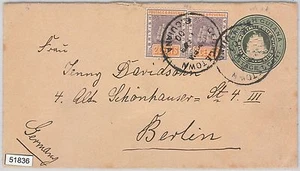 Frau
Jenny Davidssohn
4. Alte Schönhauser= St. 4. III
Berlin
Germany
51836